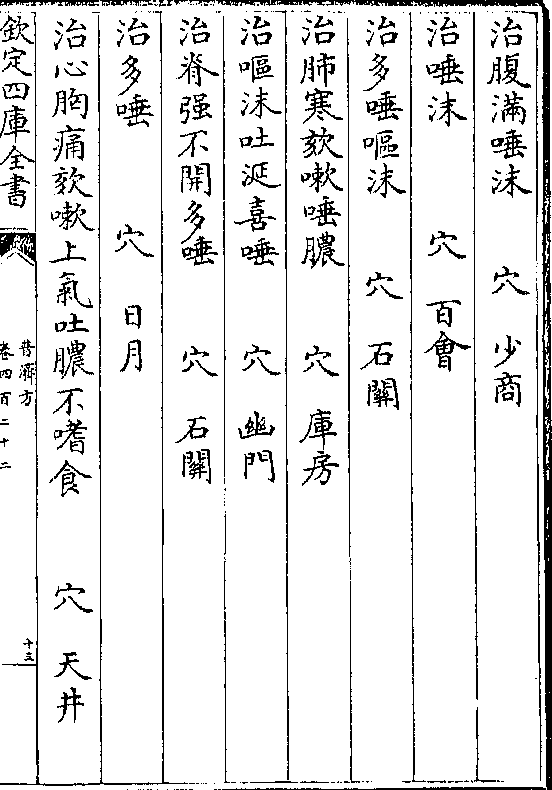 治腹滿唾沫　穴　少商
治唾沫　穴　百會
治多唾嘔沫　穴　石關
治肺寒欬嗽唾膿　穴　庫房
治嘔沫吐涎喜唾　穴　幽門
治脊强不開多唾　穴　石關
治多唾　穴　日月
治心胸痛欬嗽上氣吐膿不嗜食　穴　天井
欽定四庫全書
普濟方
卷四百二十二
十三